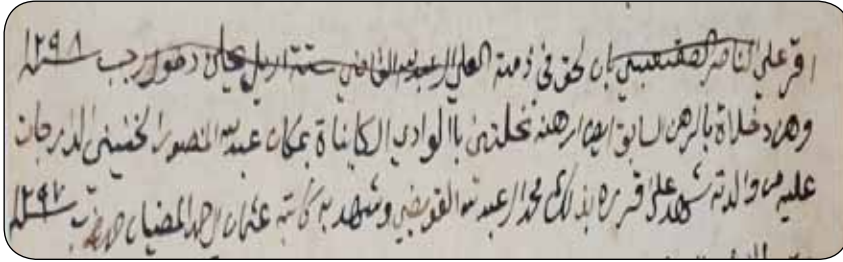 اقر علي الناصر الصقعبي بان لحق في ذمته العلي العبدالله القاضي ستة اريل يحلن دخول رجب سنة ١٢٩٨
وهن دخلاة بالرهن السابق ايضا ارهنه نخلتين باالوادي الكايناة بمكان عبدالله المنصور الخفيني الدرجات
عليه من والدته شهد على اقراره بذلك محمد العبدالله القويضي وشهد به كاتبه عثمان الحمد المضيان سنة ١٢٩٧